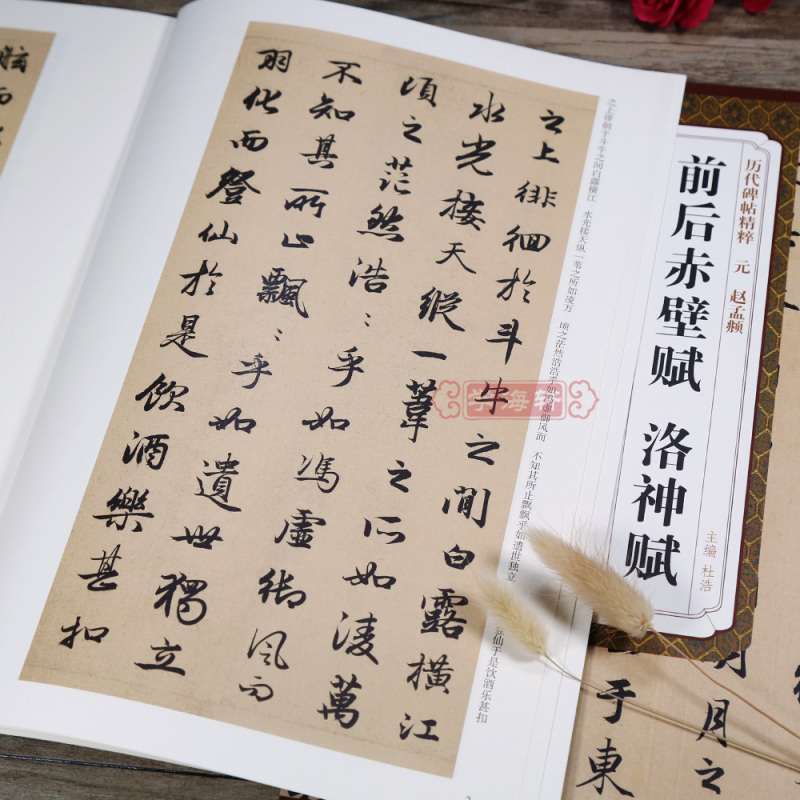 历代碑帖精粹 元 赵孟頫
前后赤壁赋 洛神赋
主编 杜浩
月之
于東
之上徘徊於斗牛之間白露橫江
水光接天縱一葦之所如淩萬
頃之茫然浩〻乎如馮虛御風而
不知其所止飄〻乎如遺世獨立
羽化而登仙於是飲酒樂甚扣
之上徘徊于斗牛之间白露横江 水光接天纵一苇之所如凌万 顷之茫然浩浩乎如冯虚御风而 不知其所止飘飘乎如遗世独立 登仙于是饮酒乐甚扣
舷而
学海轩